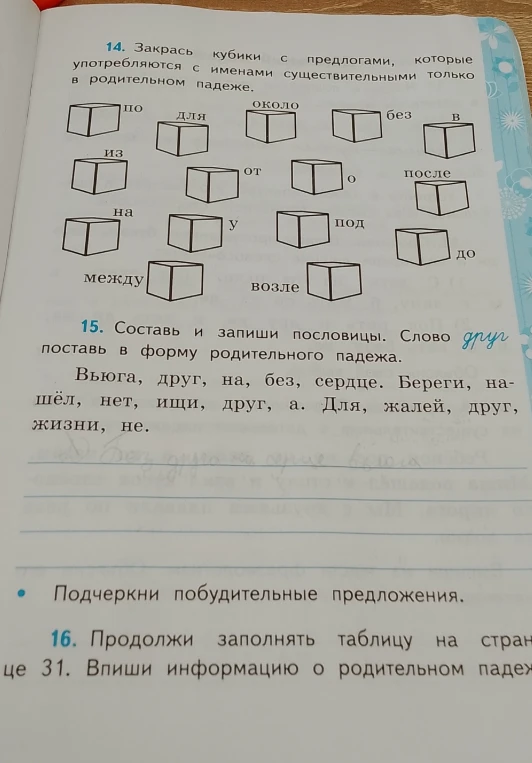 14. Закрась кубики с предлогами, которые
употребляются с именами существительными только
в родительном падеже.
по
для
около
без
в
из
от
о
после
на
у
под
до
между
возле
15. Составь и запиши пословицы. Слово друг
поставь в форму родительного падежа.
Вьюга, друг, на, без, сердце. Береги, на-
шёл, нет, ищи, друг, а. Для, жалей, друг,
жизни, не.
• Подчеркни побудительные предложения.
16. Продолжи заполнять таблицу на стран
це 31. Впиши информацию о родительном падеж